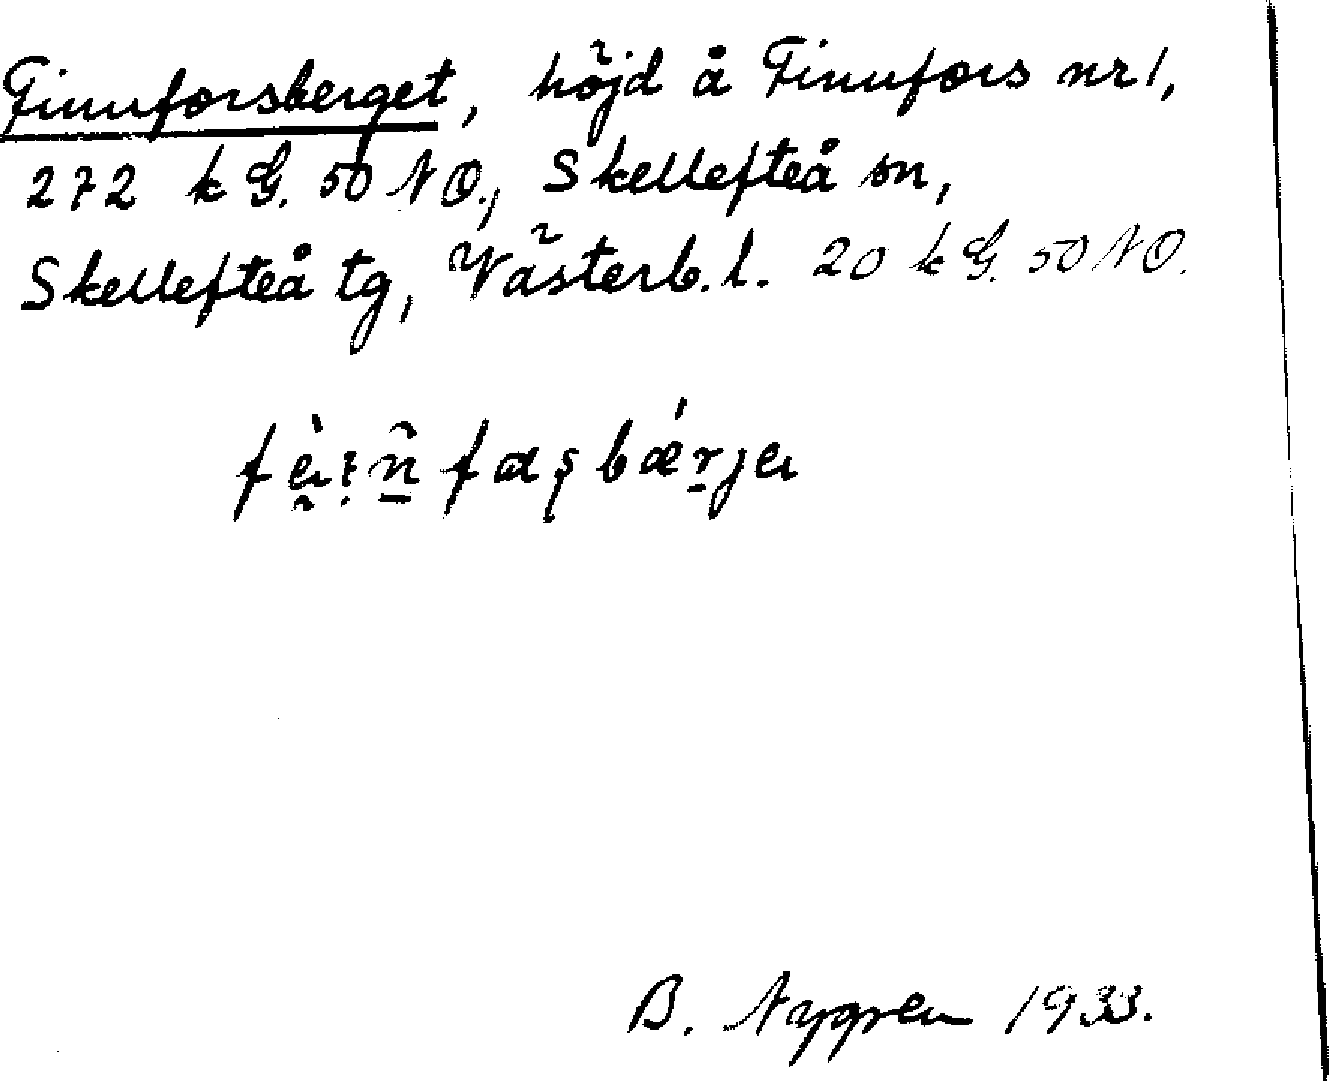 Finnforsberget, höjd å Finnfors nr 1,
272 k G. 50 NO., Skellefteå sn,
Skellefteå tg, Västerb. l. 20 k G. 50 NO.
B. Nygren 1933.